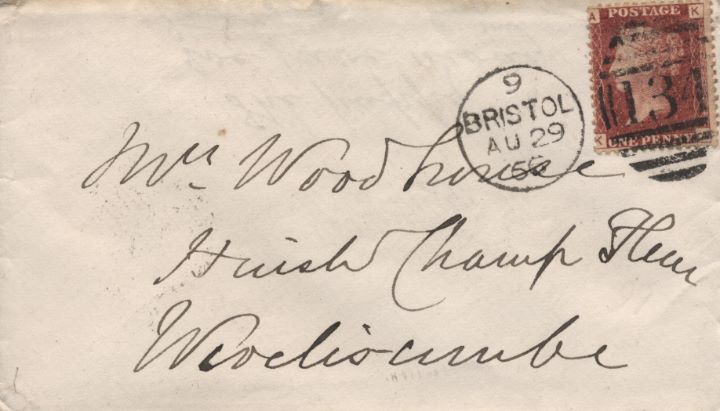 A POSTAGE K
134
K ONE PENNY
9
BRISTOL
AU 29
66
Mrs Woodhouse
Huish Champ Fleur
Wiveliscombe